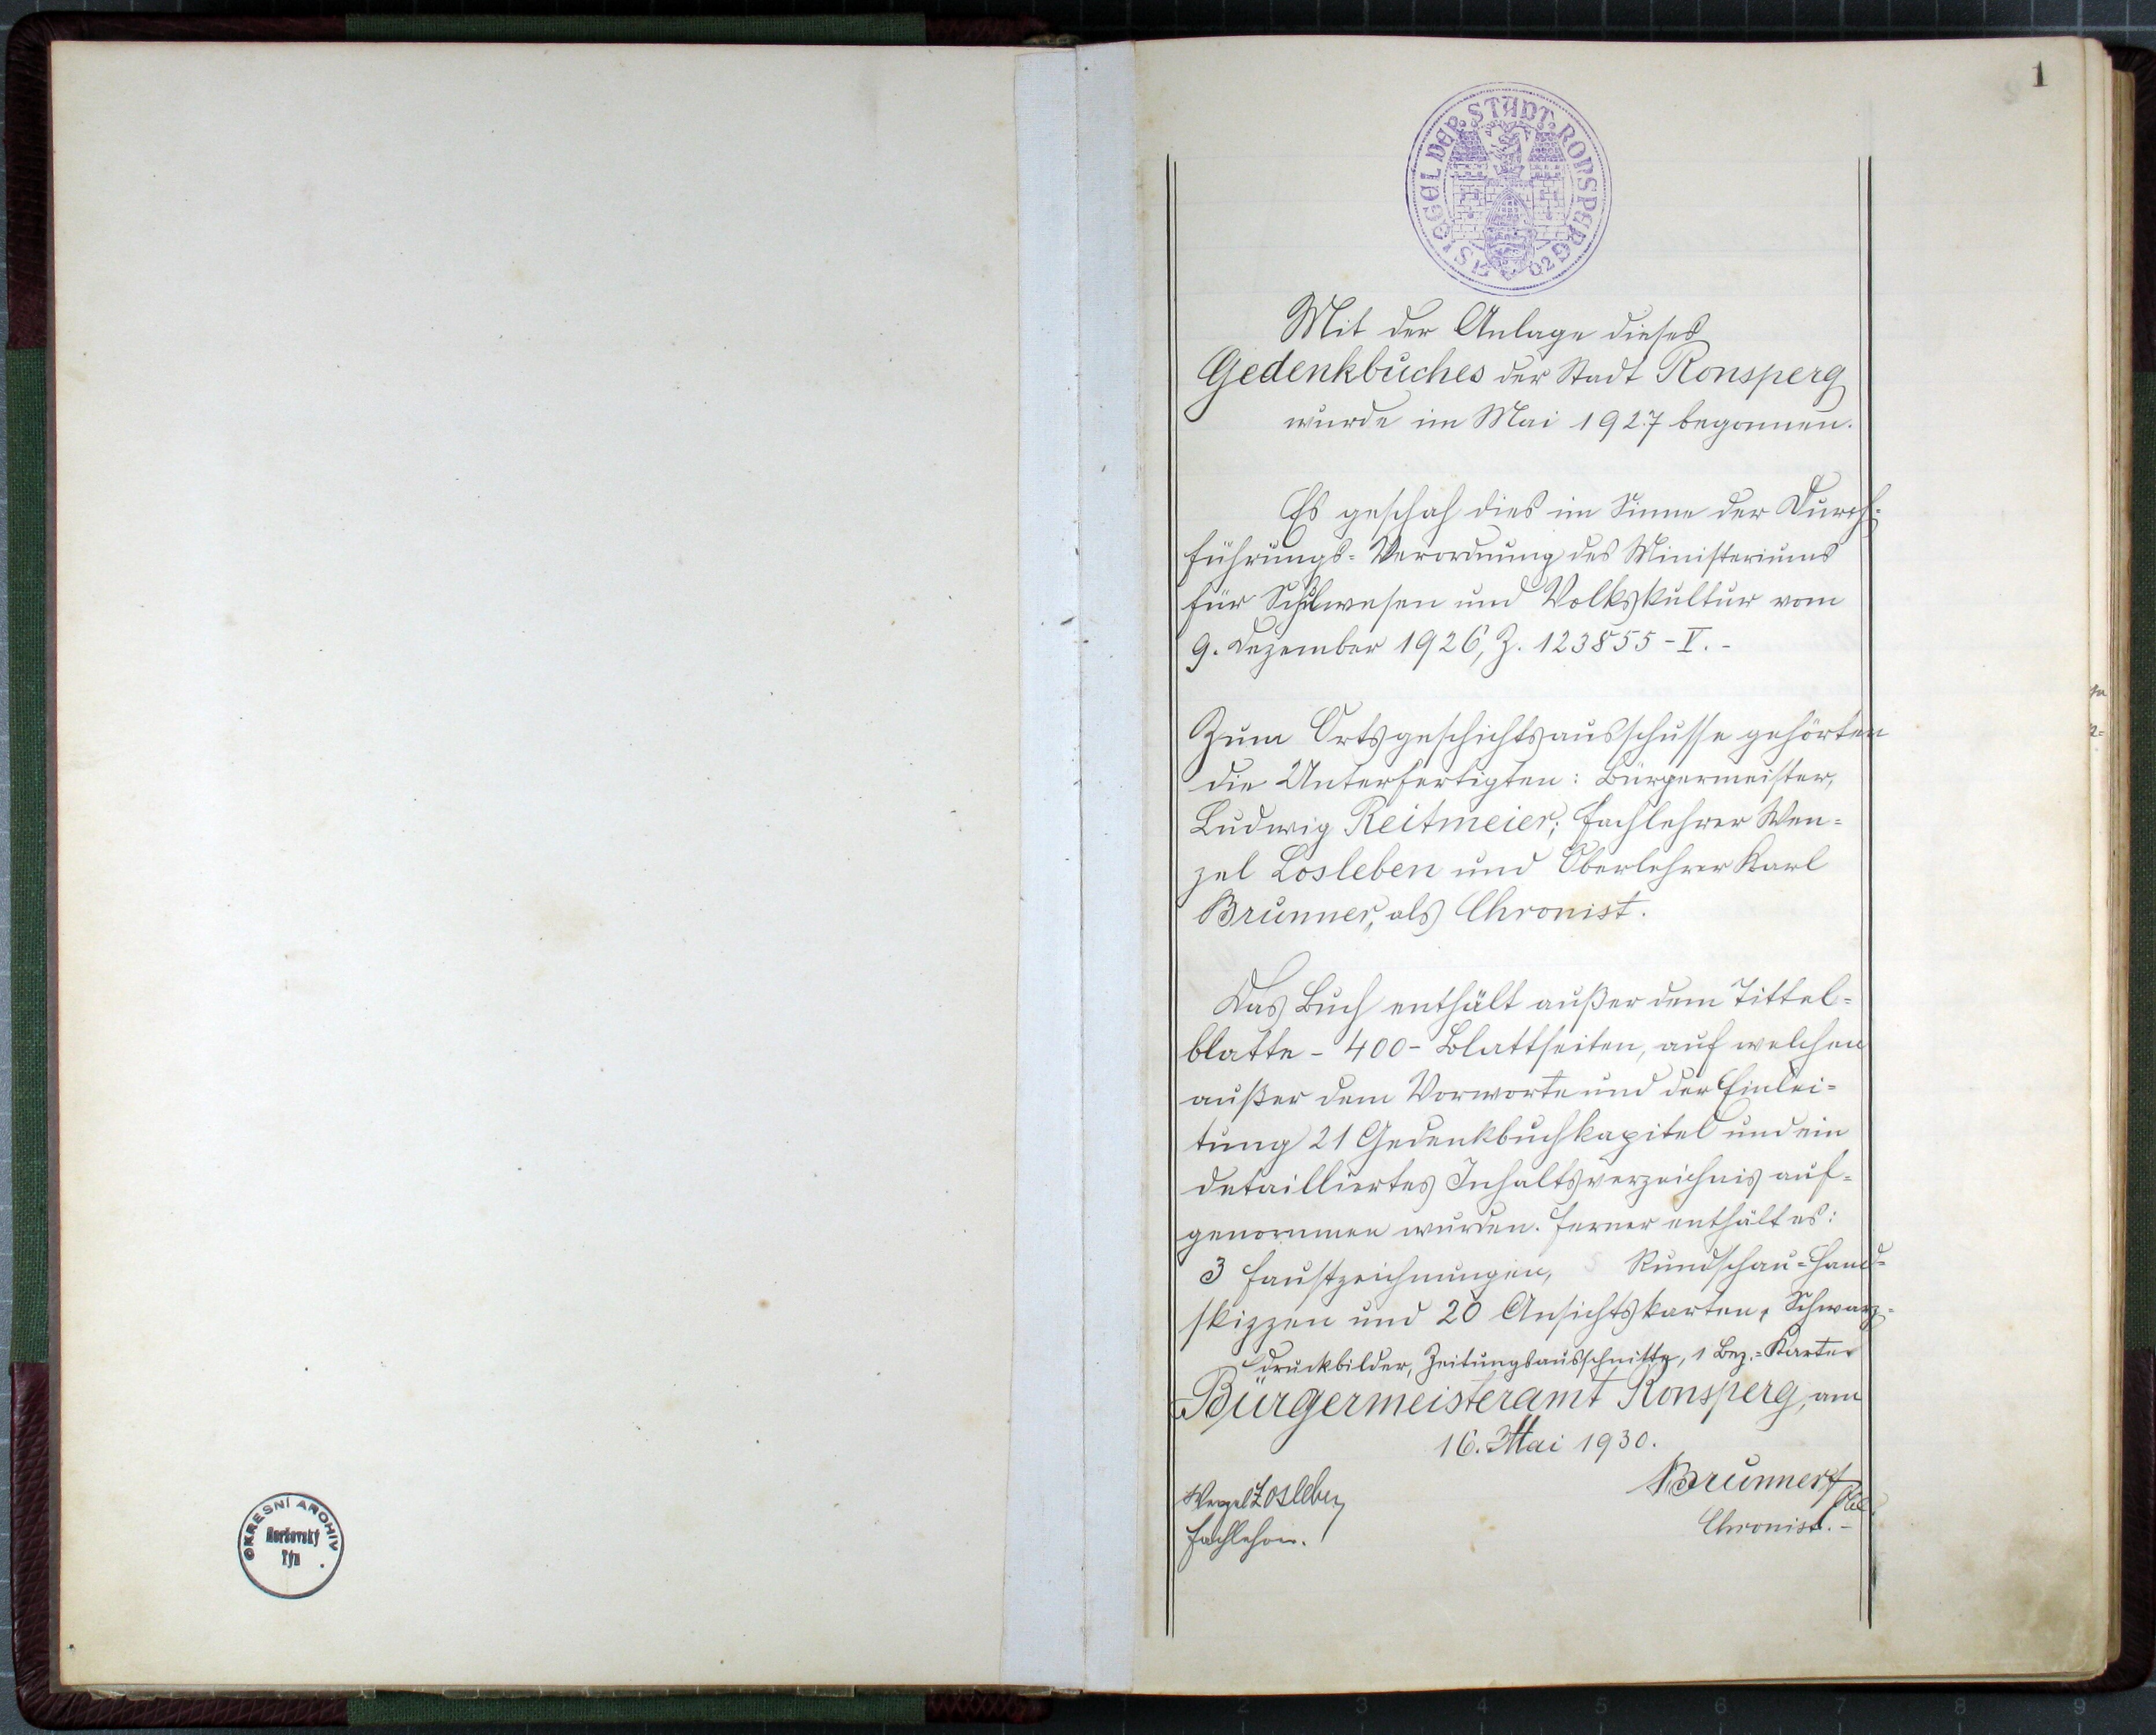 OKRESNÍ ARCHIV
Horšovský
Týn
1
SIEGEL DER STADT RONSPERG
1502
Mit der Anlage dieses
Gedenkbuches der Stadt Ronsperg
wurde im Mai 1927 begonnen.
Es geschah dies im Sinne der Durch-
führungs-Verordnung des Ministeriums
für Schulwesen und Volkskultur vom
9. Dezember 1926, Z. 123855-V.-
Zum Ortsgeschichtsausschusse gehörten
die Unterfertigten: Bürgermeister,
Ludwig Reitmeier; Fachlehrer Wen=
zel Losleben und Oberlehrer Karl
Brunner, als Chronist.
Das Buch enthält außer dem Tittel=
blatte - 400 - Blattseiten, auf welchen
außer dem Vorworte und der Einlei=
tung 21 Gedenkbuchkapitel und ein
detailliertes Inhaltsverzeichnis auf=
genommen wurden. Ferner enthält es:
3 Faustzeichnungen, Rundschau=Hand=
skizzen und 20 Ansichtskarten, Schwarz=
druckbilder, Zeitungsausschnitte, 1 Bez.=Karte.
Bürgermeisteramt Ronsperg, am
16. Mai 1930.
Wenzel Losleben
Fachlehrer.
Brunner
Chronist.-
2 3 4 5 6 7 8 9